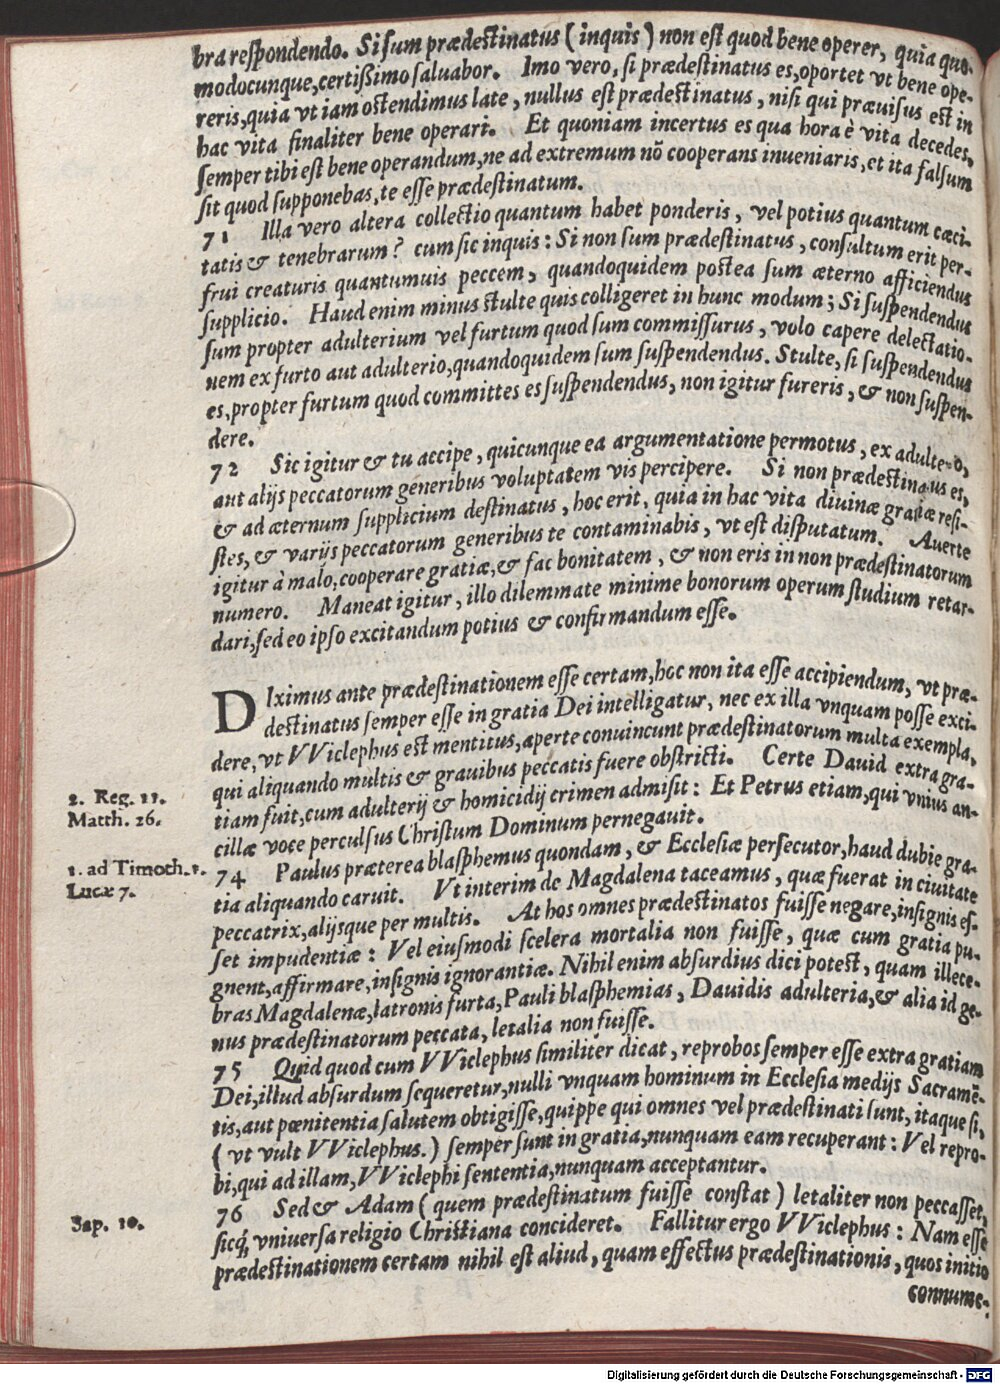 bra respondendo. Si sum prædestinatus (inquis) non est quod bene operer, quia quo-
modocunque, certißimo saluabor. Imo vero, si prædestinatus es, oportet vt bene ope-
reris, quia vt iam ostendimus late, nullus est prædestinatus, nisi qui præuisus est in
hac vita finaliter bene operari. Et quoniam incertus es qua hora è vita decedes,
semper tibi est bene operandum, ne ad extremum nō cooperans inueniaris, et ita falsum
sit quod supponebas, te esse prædestinatum.
71 Illa vero altera collectio quantum habet ponderis, vel potius quantum cæci-
tatis & tenebrarum? cum sic inquis: Si non sum prædestinatus, consultum erit per-
frui creaturis quantumuis peccem, quandoquidem postea sum æterno afficiendus
supplicio. Haud enim minus stulte quis colligeret in hunc modum; Si suspendendus
sum propter adulterium vel furtum quod sum commissurus, volo capere delectatio-
nem ex furto aut adulterio, quandoquidem sum suspendendus. Stulte, si suspendendus
es, propter furtum quod committes es suspendendus, non igitur fureris, & non suspen-
dere.
72 Sic igitur & tu accipe, quicunque ea argumentatione permotus, ex adulterio,
aut alijs peccatorum generibus voluptatem vis percipere. Si non prædestinatus es,
& ad æternum supplicium destinatus, hoc erit, quia in hac vita diuinæ gratiæ resi-
stes, & varijs peccatorum generibus te contaminabis, vt est disputatum. Auerte
igitur à malo, cooperare gratiæ, & fac bonitatem, & non eris in non prædestinatorum
numero. Maneat igitur, illo dilemmate minime bonorum operum studium retar-
dari, sed eo ipso excitandum potius & confirmandum esse.
DIximus ante prædestinationem esse certam, hoc non ita esse accipiendum, vt præ-
destinatus semper esse in gratia Dei intelligatur, nec ex illa vnquam posse exci-
dere, vt VViclephus est mentitus, aperte conuincunt prædestinatorum multa exempla,
qui aliquando multis & grauibus peccatis fuere obstricti. Certe Dauid extra gra-
tiam fuit, cum adulterij & homicidij crimen admisit: Et Petrus etiam, qui vnius an-
cillæ voce perculsus Christum Dominum pernegauit.
2. Reg. 11.
Matth. 26.
74 Paulus præterea blasphemus quondam, & Ecclesiæ persecutor, haud dubie gra-
tia aliquando caruit. Vt interim de Magdalena taceamus, quæ fuerat in ciuitate
peccatrix, alijsque per multis. At hos omnes prædestinatos fuisse negare, insignis es-
set impudentiæ: Vel eiusmodi scelera mortalia non fuisse, quæ cum gratia pu-
gnent, affirmare, insignis ignorantiæ. Nihil enim absurdius dici potest, quam illece-
bras Magdalenæ, latronis furta, Pauli blasphemias, Dauidis adulteria, & alia id ge-
nus prædestinatorum peccata, letalia non fuisse.
1. ad Timoth. 1.
Lucæ 7.
75 Quid quod cum VViclephus similiter dicat, reprobos semper esse extra gratiam
Dei, illud absurdum sequeretur, nulli vnquam hominum in Ecclesia medijs Sacramē-
tis, aut pœnitentia salutem obtigisse, quippe qui omnes vel prædestinati sunt, itaque si,
(vt vult VViclephus.) semper sunt in gratia, nunquam eam recuperant: Vel repro-
bi, qui ad illam, VViclephi sententia, nunquam acceptantur.
76 Sed & Adam (quem prædestinatum fuisse constat) letaliter non peccasset,
sicq́; vniuersa religio Christiana concideret. Fallitur ergo VViclephus: Nam esse
prædestinationem certam nihil est aliud, quam effectus prædestinationis, quos initio
connume-
Sap. 10.
Digitalisierung gefördert durch die Deutsche Forschungsgemeinschaft - DFG